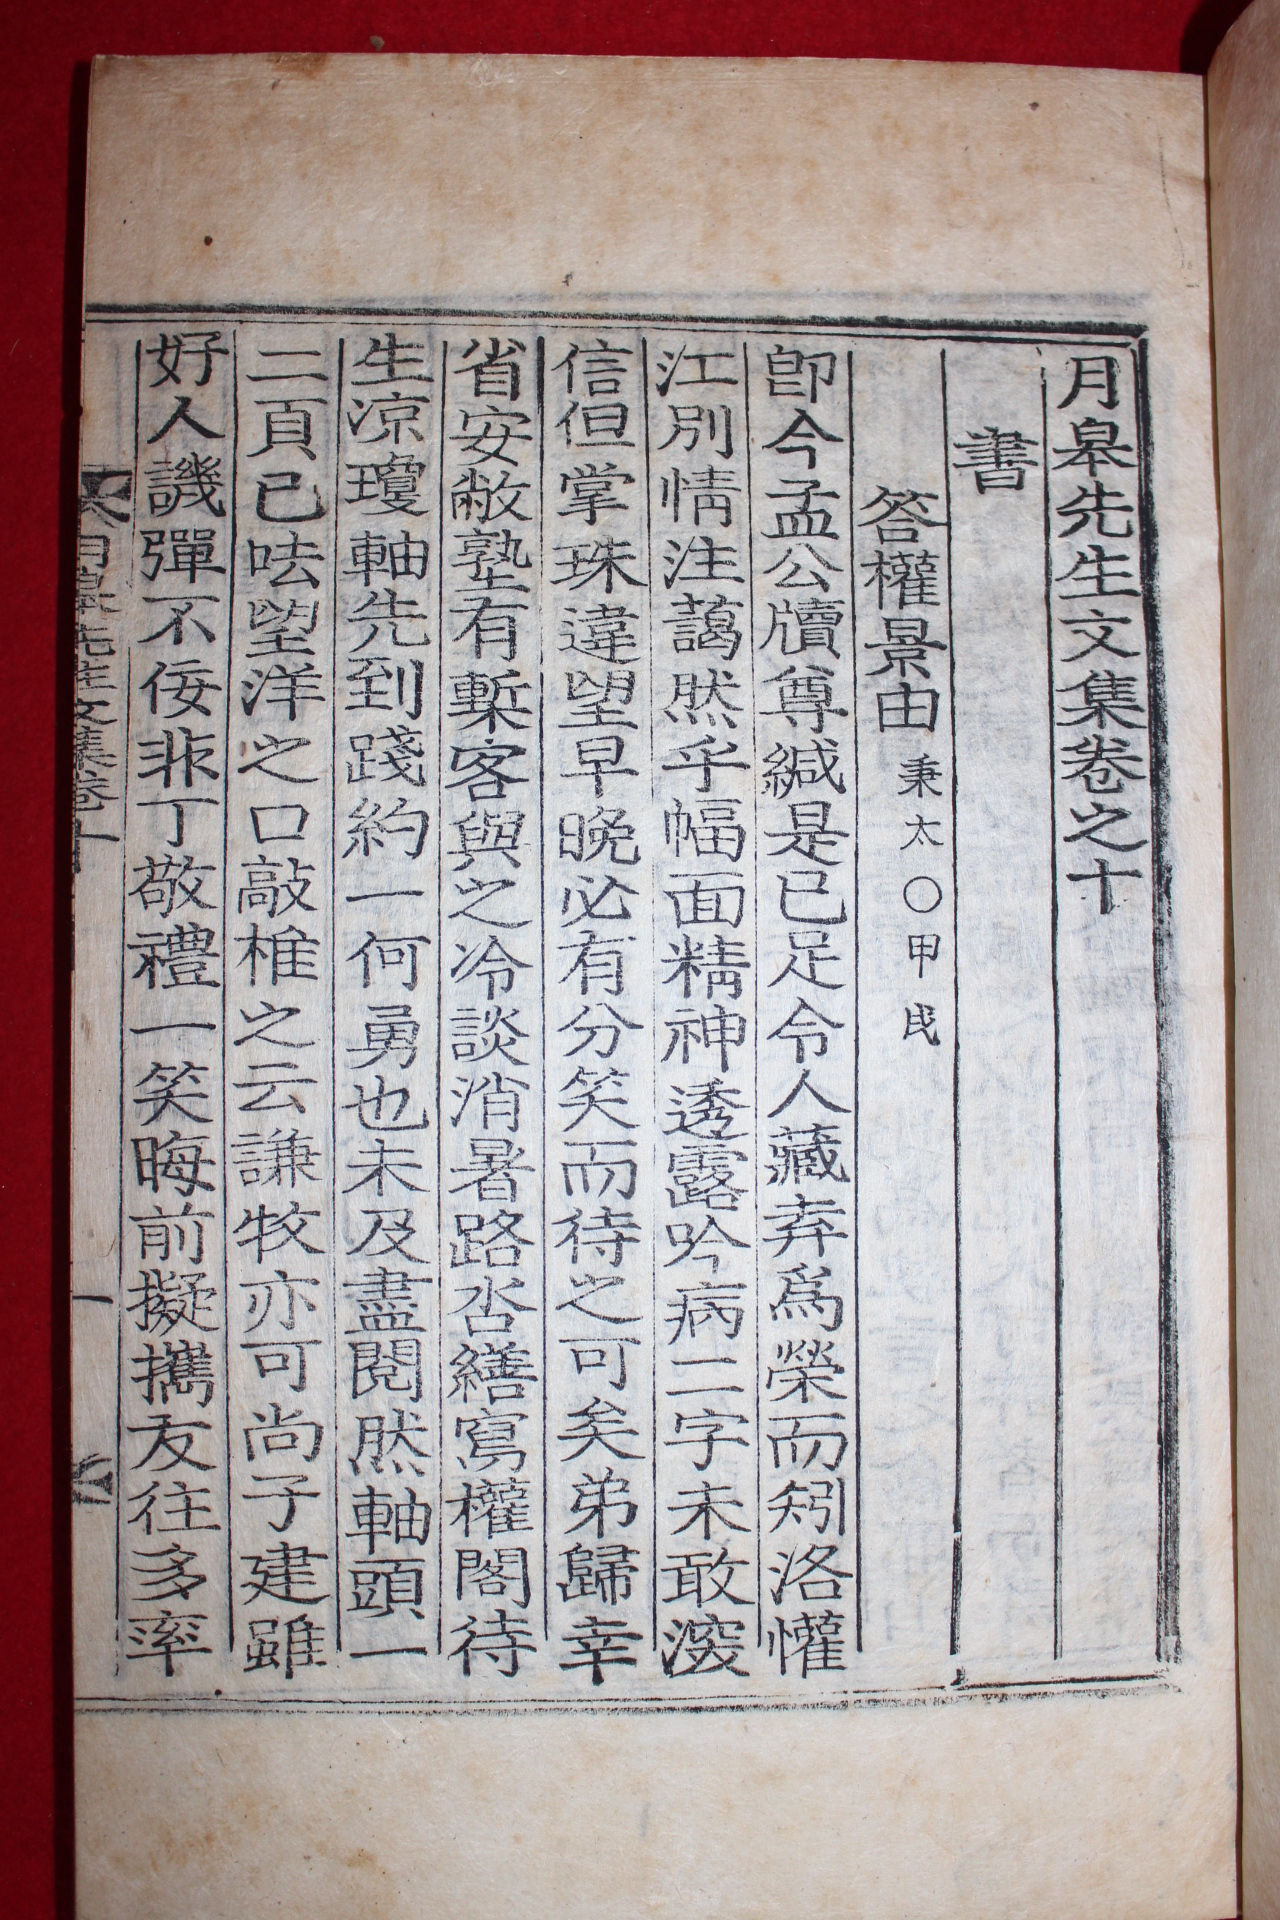 月皐先生文集卷之十
書
答權景由 秉太○甲戌
卽今孟公牘尊緘是已足令人藏弆爲榮而矧洛懽
江別情注藹然乎幅面精神透露吟病二字未敢深
信但掌珠違望早晩必有分笑而待之可矣弟歸幸
省安敝塾有槧客與之冷談消暑路呇繕寫權閣待
生凉瓊軸先到踐約一何勇也未及盡閱然軸頭一
二頁已呿望洋之口敲椎之云謙牧亦可尚子建雖
好人譏彈不佞非丁敬禮一笑晦前擬攜友往多率
月皐先生文集卷十
一